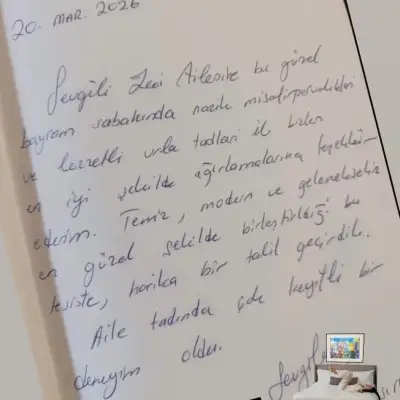 20. MAR. 2026
Sevgili Zevi Ailesine bu güzel
bayram sabahında nazik misafirperverlikleri
ve lezzetli urla tadları ile bizleri
en iyi şekilde ağırlamalarına teşekkür
ederim. Temiz, modern ve gelenekselin
en güzel şekilde birleştirildiği bu
tesiste, harika bir tatil geçirdik.
Aile tadında çok keyifli bir
deneyim oldu.